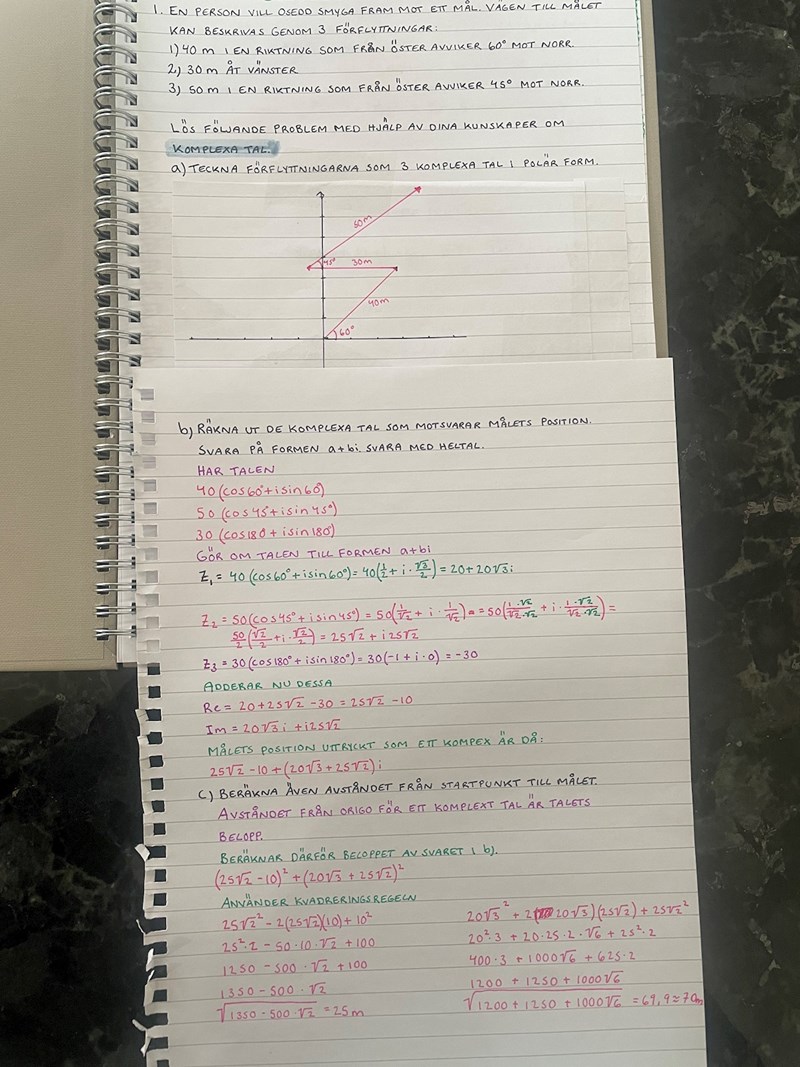 1. EN PERSON VILL OSEDD SMYGA FRAM MOT ETT MÅL. VÄGEN TILL MÅLET
KAN BESKRIVAS GENOM 3 FÖRFLYTTNINGAR:
1) 40 m I EN RIKTNING SOM FRÅN ÖSTER AVVIKER 60° MOT NORR.
2) 30 m ÅT VÄNSTER
3) 50 m I EN RIKTNING SOM FRÅN ÖSTER AVVIKER 45° MOT NORR.
LÖS FÖLJANDE PROBLEM MED HJÄLP AV DINA KUNSKAPER OM
KOMPLEXA TAL.
a) TECKNA FÖRFLYTTNINGARNA SOM 3 KOMPLEXA TAL I POLÄR FORM.
50m
45° 30m
40m
60°
b) RÄKNA UT DE KOMPLEXA TAL SOM MOTSVARAR MÅLETS POSITION.
SVARA PÅ FORMEN a+bi. SVARA MED HELTAL.
HAR TALEN
40 (cos60°+isin60°)
50 (cos45°+isin45°)
30 (cos180°+isin180°)
GÖR OM TALEN TILL FORMEN a+bi
Z₁ = 40 (cos60°+isin60°) = 40(1/2 + i · √3/2) = 20+20√3i
Z₂ = 50(cos45°+isin45°) = 50(1/√2 + i · 1/√2) = = 50(1·√2/√2·√2 + i · 1·√2/√2·√2) =
50/2 (√2/2 + i · √2/2) = 25√2 + i25√2
Z₃ = 30(cos180°+isin180°) = 30(-1+i·0) = -30
ADDERAR NU DESSA
Re = 20+25√2 -30 = 25√2 -10
Im = 20√3i +i25√2
MÅLETS POSITION UTTRYCKT SOM ETT KOMPEX ÄR DÅ:
25√2 -10 + (20√3+25√2)i
C) BERÄKNA ÄVEN AVSTÅNDET FRÅN STARTPUNKT TILL MÅLET.
AVSTÅNDET FRÅN ORIGO FÖR ETT KOMPLEXT TAL ÄR TALETS
BELOPP.
BERÄKNAR DÄRFÖR BELOPPET AV SVARET I b).
(25√2 -10)² + (20√3 + 25√2)²
ANVÄNDER KVADRERINGSREGELN
25√2² - 2(25√2)(10) + 10²
25²·2 - 50·10·√2 +100
1250 - 500 · √2 +100
1350 - 500 · √2
√1350 - 500 · √2 = 25m
20√3² + 2(20√3)(25√2) + 25√2²
20²·3 + 20·25·2·√6 + 25²·2
400·3 + 1000√6 + 625·2
1200 + 1250 + 1000√6
√1200 + 1250 + 1000√6 = 69,9≈70m